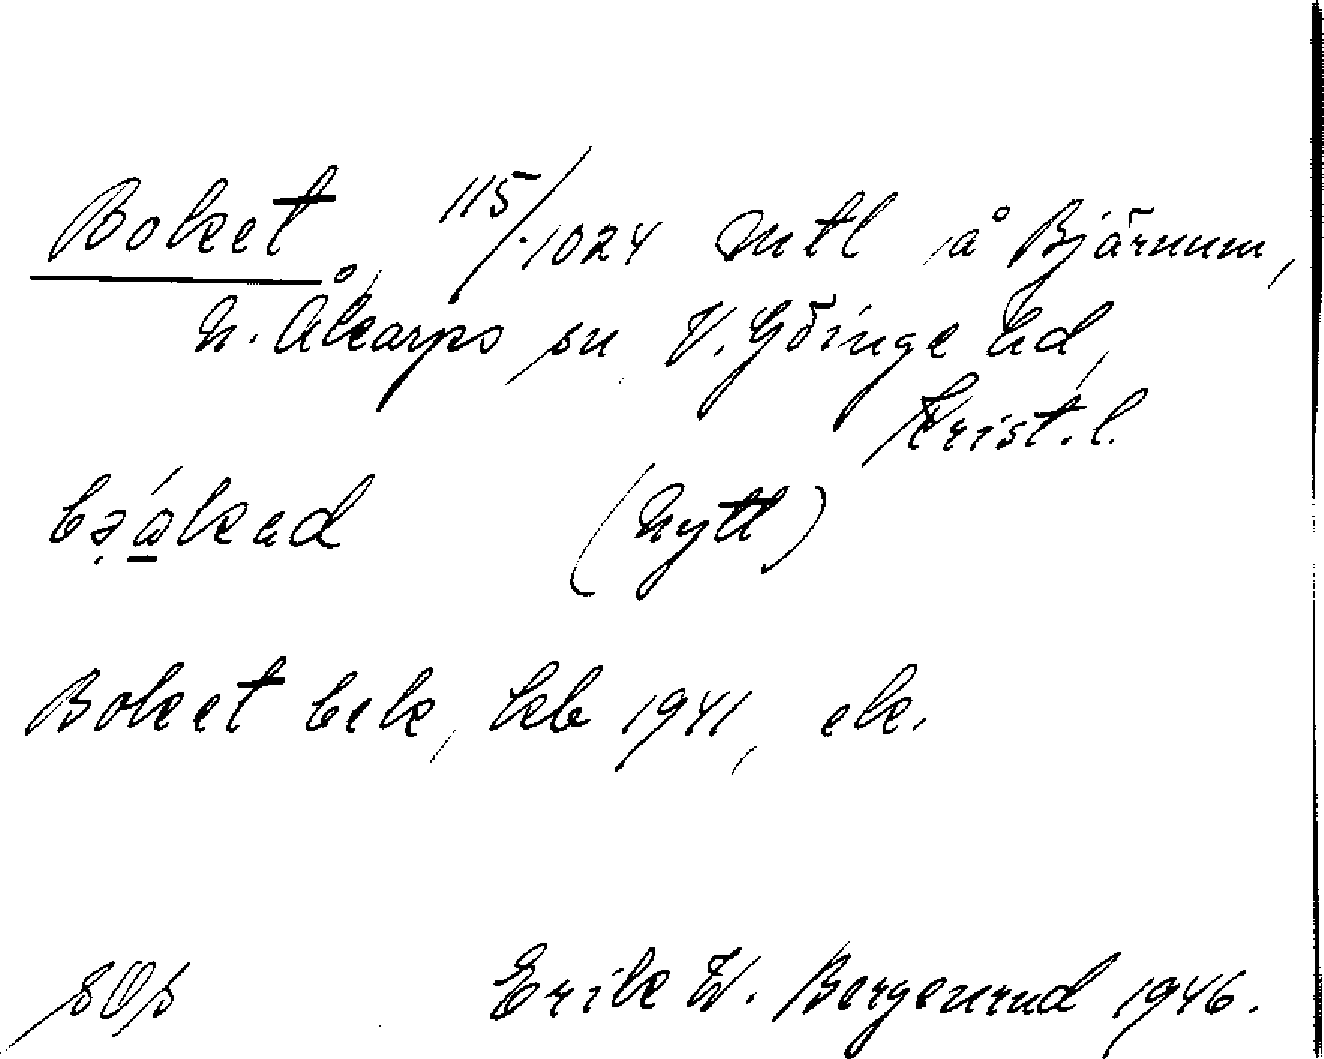 Boket, 115/1024 mtl å Bjärnum,
N. Åkarps sn V. Göinge hd,
Krist. l.
(Nytt)
Boket bek, kb 1941, ek.
Erik W. Bergenrud 1946.